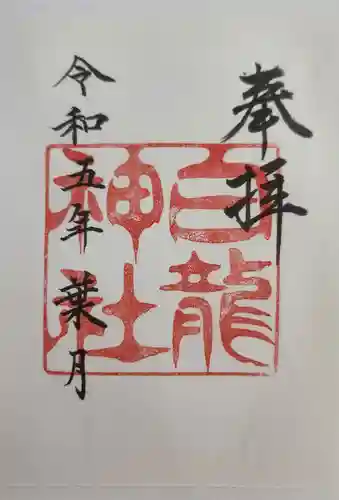 奉拝
白龍
神社
令和五年葉月